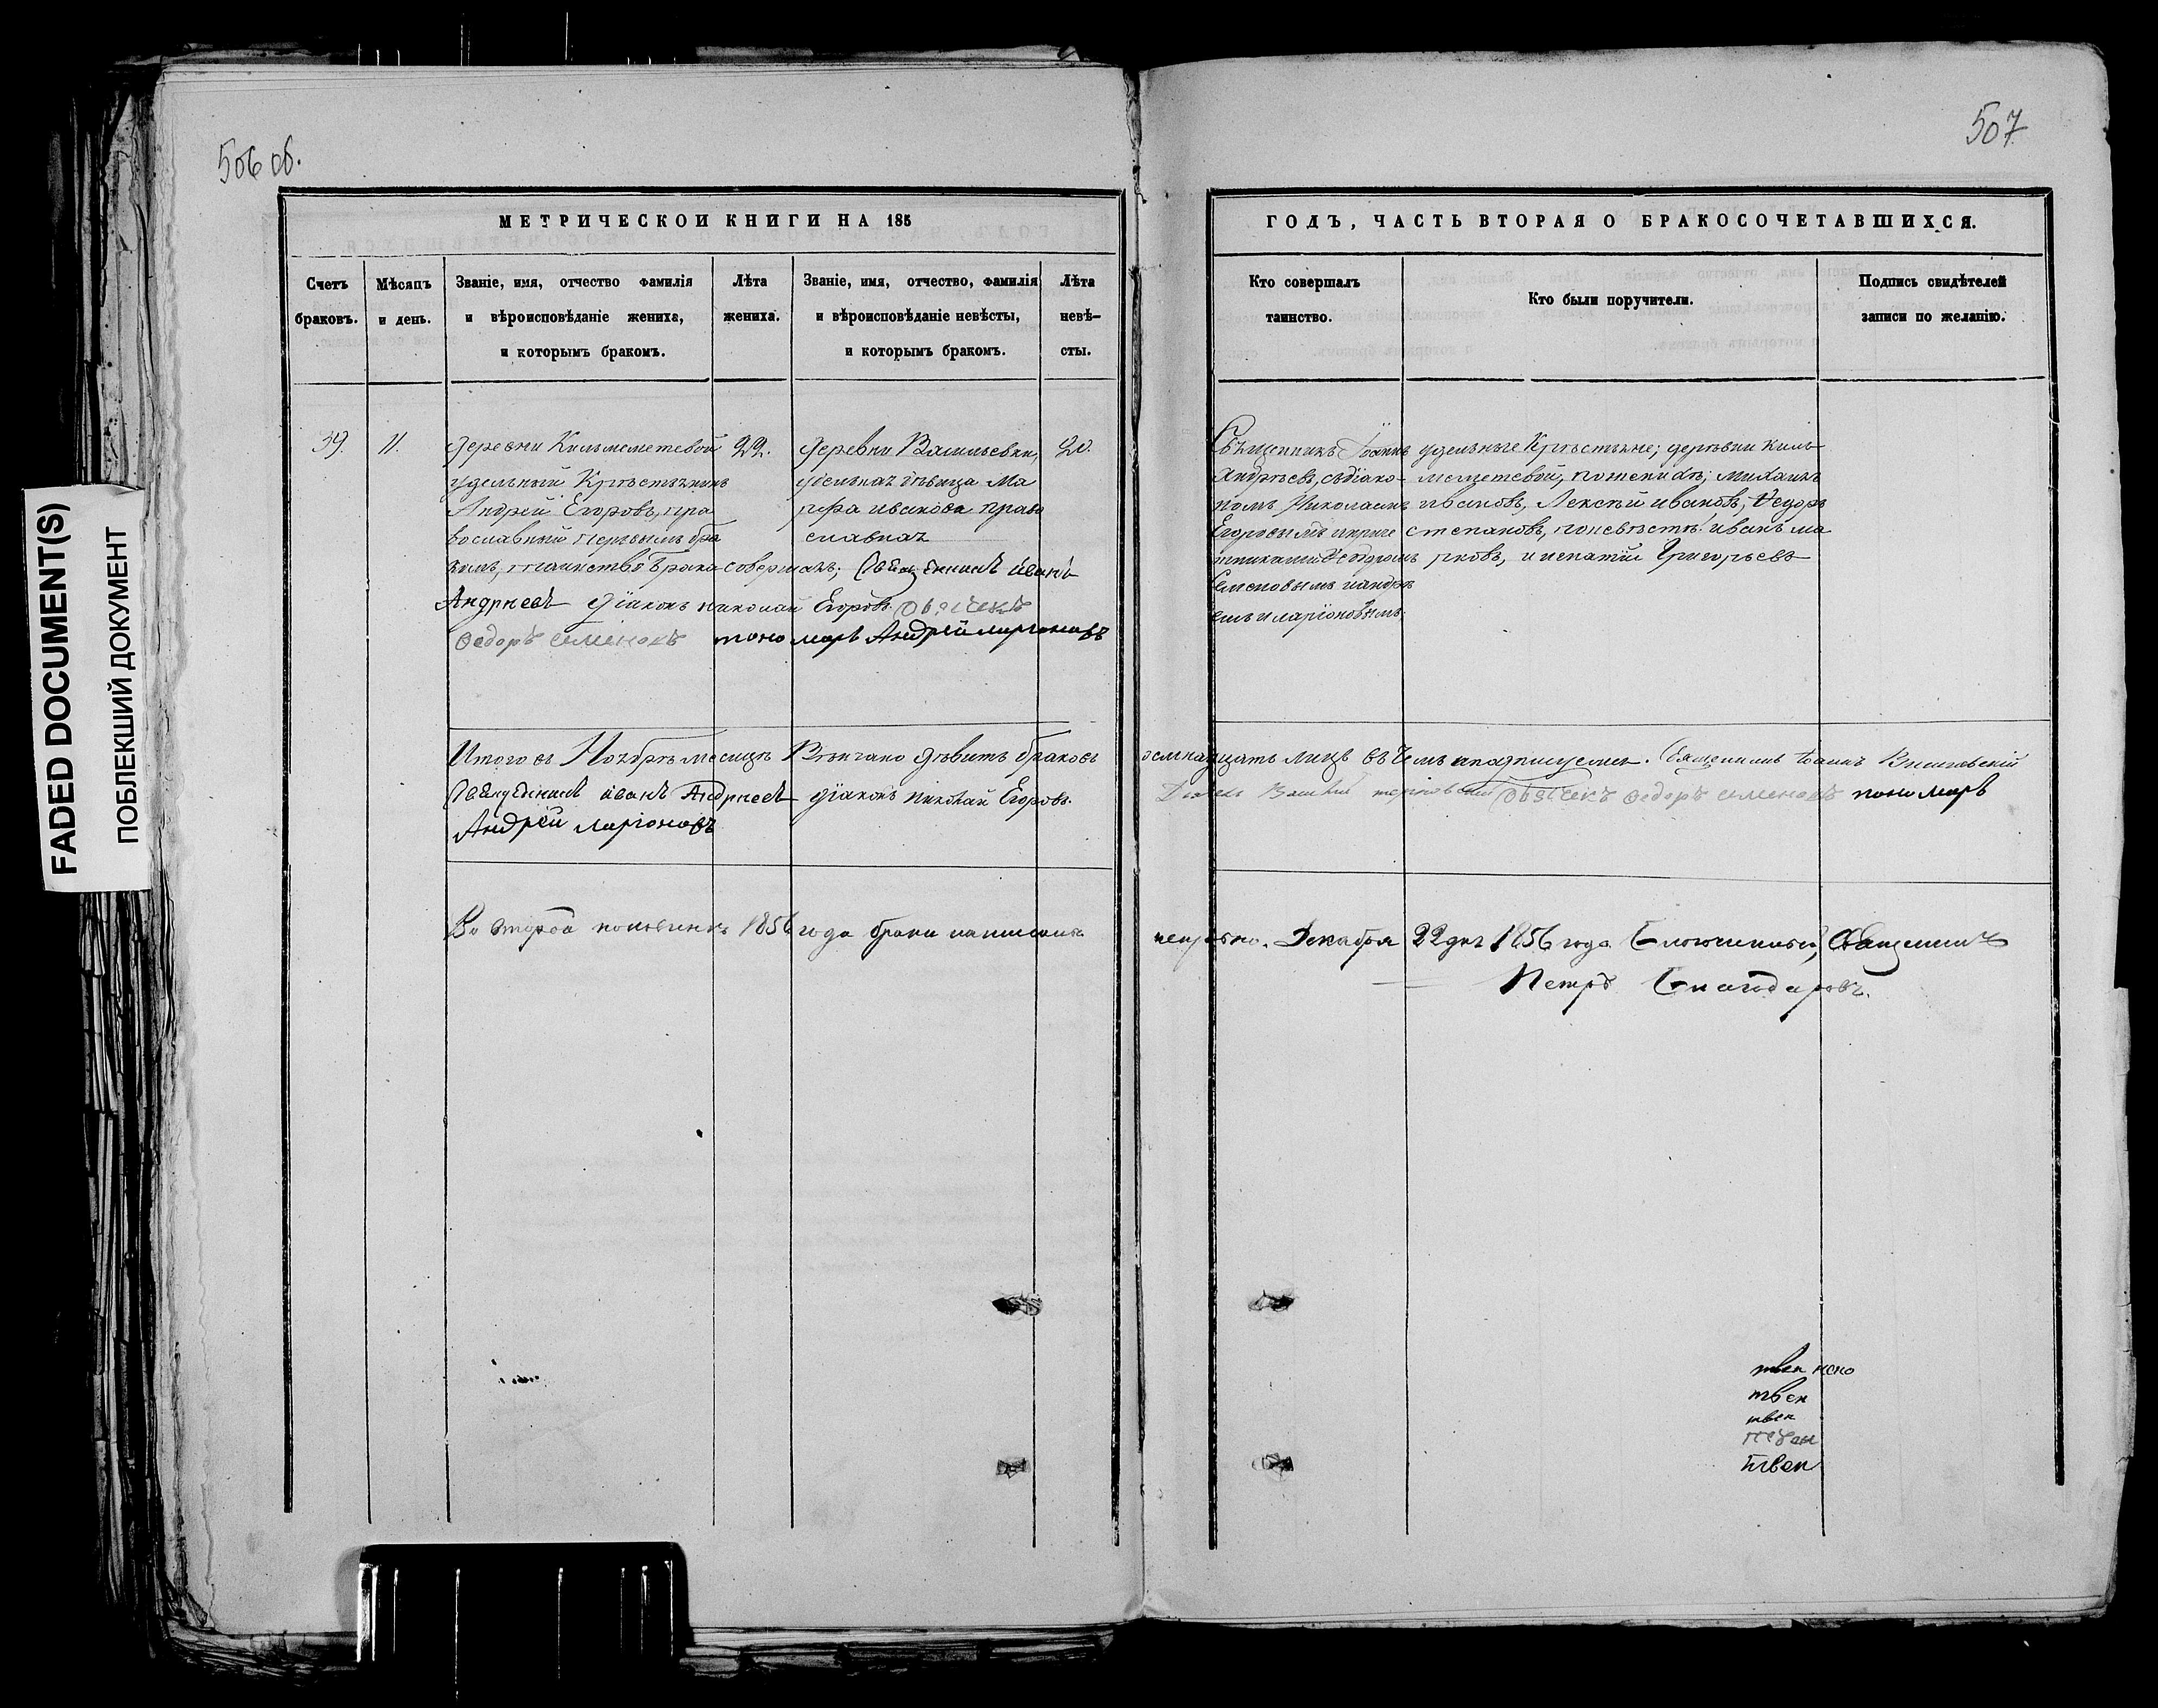 506 об.
507
FADED DOCUMENT(S)
ПОБЛЕКШИЙ ДОКУМЕНТ
МЕТРИЧЕСКОЙ КНИГИ НА 185
ГОДЪ, ЧАСТЬ ВТОРАЯ О БРАКОСОЧЕТАВШИХСЯ.
Счетъ браковъ.
Мѣсяцъ и день.
Званіе, имя, отчество фамилія
и вѣроисповѣданіе жениха,
и которымъ бракомъ.
Лѣта
жениха.
Званіе, имя, отчество, фамилія
и вѣроисповѣданіе невѣсты,
и которымъ бракомъ.
Лѣта
невѣ-
сты.
Кто совершалъ
таинство.
Кто были поручители.
Подпись свидѣтелей
записи по желанію.
39.
11.
деревни Кильмеметевой
удельный Крѣстьянинъ
Андрей Егоровъ, пра
вославный первымъ бра
комъ, таинство брака совершалъ; Священникъ Иванъ
Андриевъ Діаконъ николай Егоровъ
Федоръ семеновъ пономарь Андрей ларіоновъ
22.
деревни Васильевки,
удельная дѣвица Ма
рфа иванова право
славная
20.
Священникъ Іоаннъ
Андрѣевъ, съ діако-
номъ Николаемъ
Егоровымъ и приче
тниками Феодромъ
Семеновымъ и андрѣ
емъ иларіоновымъ.
удельные Крѣстьяне; деревни киль
меметевой, по женихѣ; михаилъ
ивановъ, Лексѣй ивановъ, Федоръ
степановъ, по невѣстѣ: иванъ ма
рковъ, и игнатій Григорьевъ
Итого въ Ноябрѣ месяцѣ Вѣнчано дѣвять браковъ
осмнадцать лицъ въ чемъ и подписуемъ. Священникъ Іоаннъ
Священникъ иванъ Андриевъ діаконъ николай Егоровъ.
Федоръ семеновъ пономарь
Андрей ларіоновъ
Во второй половинѣ 1856 года браки написаны
Декабря 22 дня 1856 года Священникъ
Петръ
твен
твен
твен
твен